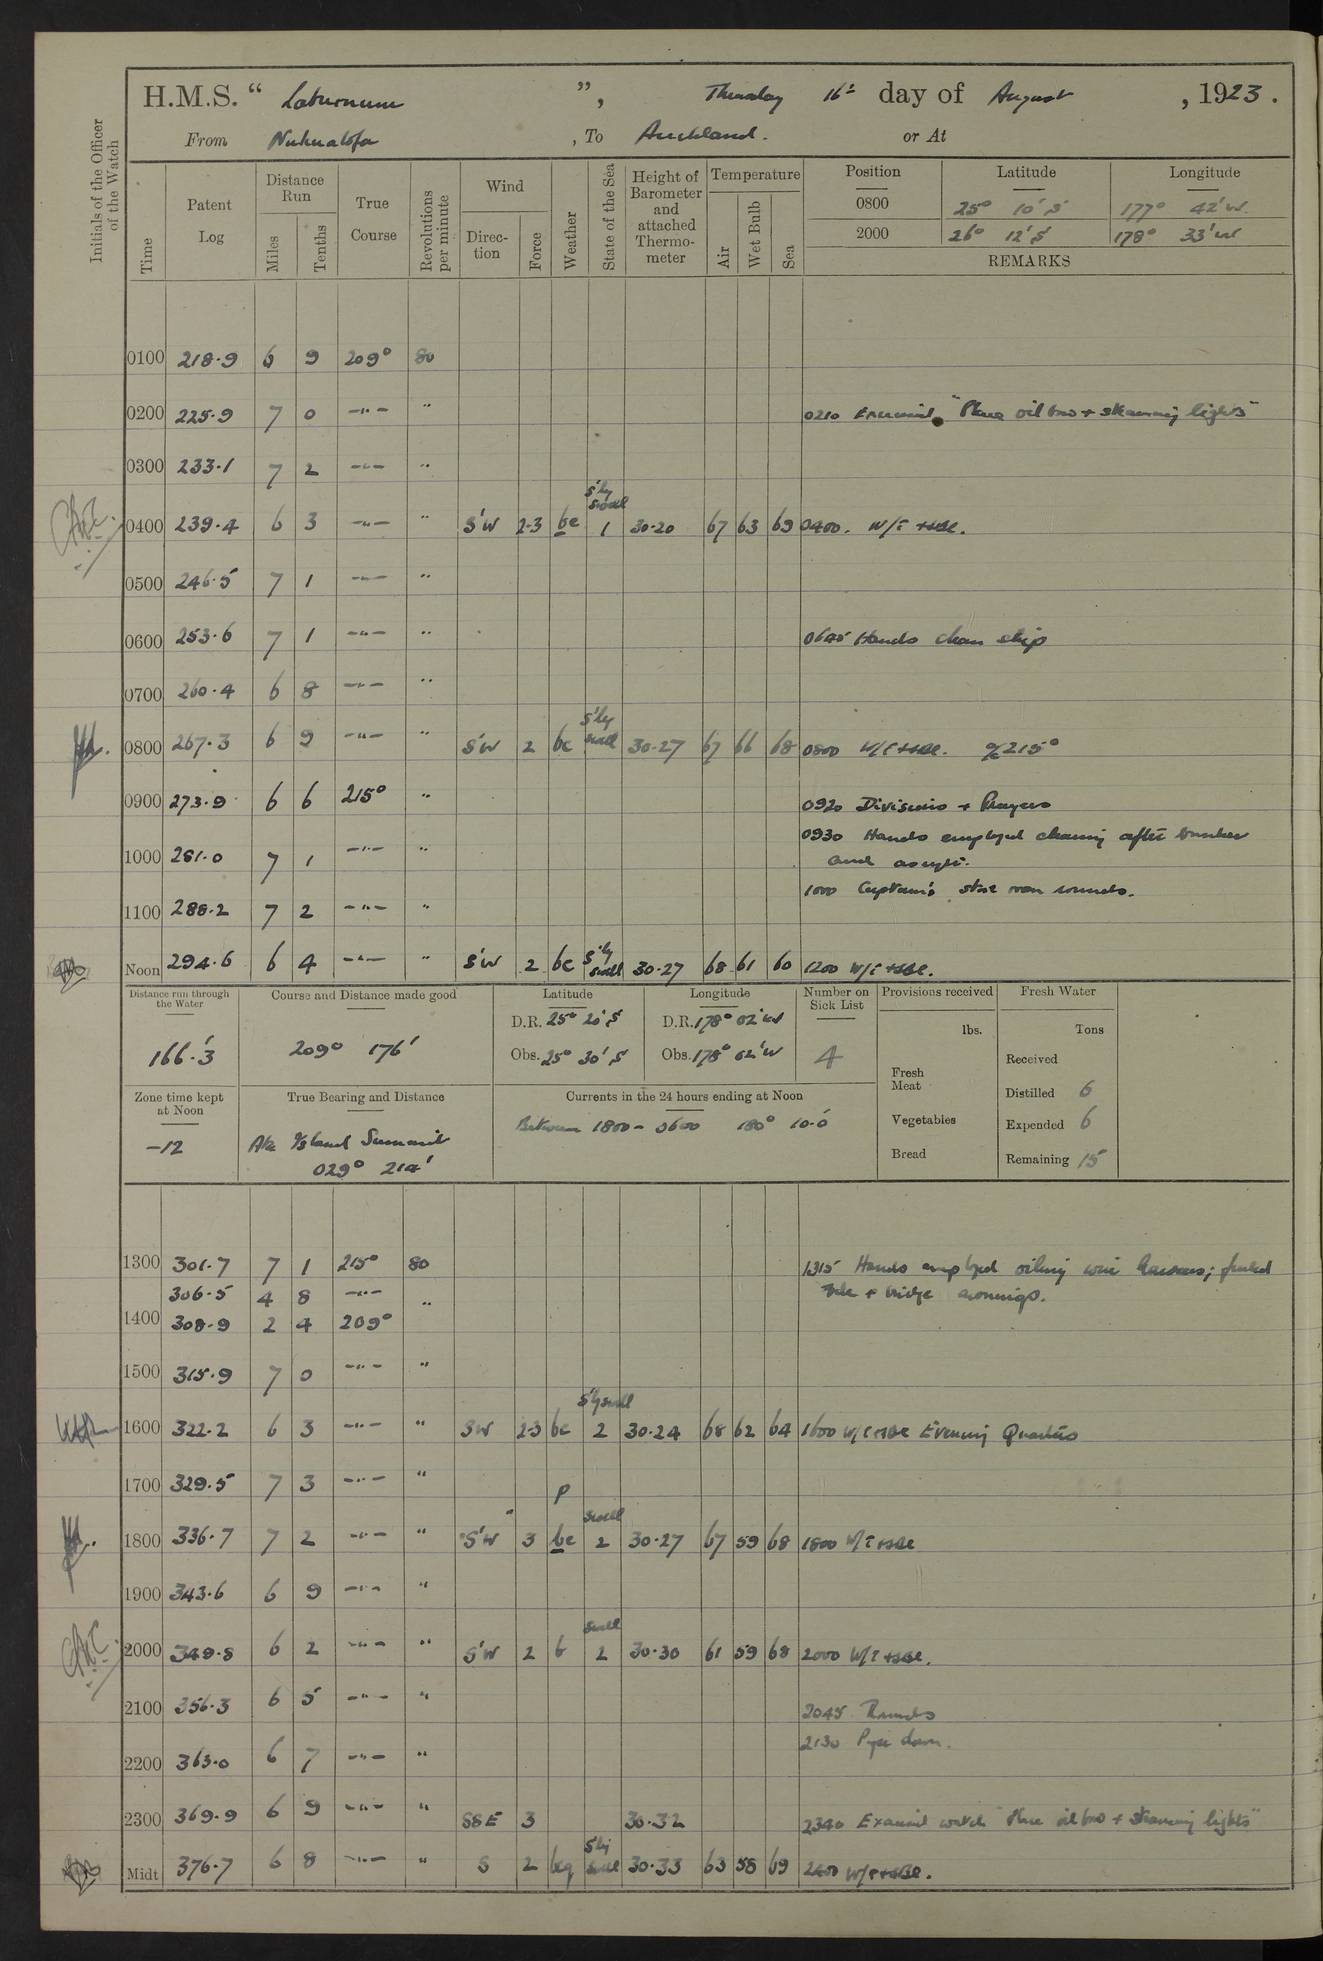 H.M.S. " Laburnum ", Thursday 16th day of August, 1923.
From Nukualofa, To Auckland. or At
Initials of the Officer of the Watch
Time Patent Log Distance Run Miles Tenths True Course Revolutions per minute Wind Direc-tion Force Weather State of the Sea Height of Barometer and attached Thermo-meter Temperature Air Wet Bulb Sea
Position Latitude Longitude
0800 25° 10' S 177° 42' W.
2000 26° 12' S 178° 33' W
REMARKS
0100 218.9 6 9 209° 80
0200 225.9 7 0 —"— " 0210 Exercised "Place oil bow + steaming lights"
0300 233.1 7 2 —"— "
0400 239.4 6 3 —"— " S'W 2-3 bc S'ly swell 1 30.20 67 63 69 0400. W/T +
0500 246.5 7 1 —"— "
0600 253.6 7 1 —"— " 0645 Hands clean ship
0700 260.4 6 8 —"— "
0800 267.3 6 9 —"— " S'W 2 bc S'ly swell 30.27 67 66 68 0800 W/T + a/c 215°
0900 273.9 6 6 215° " 0920 Divisions + Prayers
0930 Hands employed cleaning after bunker
1000 281.0 7 1 —"— " and as reqte.
1000 Captain's store room rounds.
1100 288.2 7 2 —"— "
Noon 294.6 6 4 —"— " S'W 2 bc S'ly swell 30.27 68 61 60 1200 W/T +
Distance run through the Water 166.3'
Course and Distance made good 209° 176'
Latitude D.R. 25° 20' S Obs. 25° 30' S
Longitude D.R. 178° 02' W Obs. 178° 02' W
Number on Sick List 4
Provisions received lbs. Fresh Meat Vegetables Bread
Fresh Water Tons Received Distilled 6 Expended 6 Remaining 15
Zone time kept at Noon -12
True Bearing and Distance Ata Island Summit 029° 214'
Currents in the 24 hours ending at Noon Between 1800 - 0600 180° 10.0'
1300 301.7 7 1 215° 80 1315 Hands employed oiling wire hawsers; furled
306.5 4 8 —"— side + bridge awnings.
1400 308.9 2 4 209° "
1500 315.9 7 0 —"— "
1600 322.2 6 3 —"— " SW 2-3 bc S'ly swell 2 30.24 68 62 64 1600 W/T + Evening Quarters
1700 329.5 7 3 —"— " p
1800 336.7 7 2 —"— " S'W 3 bc swell 2 30.27 67 59 68 1800 W/T +
1900 343.6 6 9 —"— "
2000 349.8 6 2 —"— " S'W 2 b swell 2 30.30 61 59 68 2000 W/T +
2100 356.3 6 5 —"— " 2045 Rounds
2130 Pipe down.
2200 363.0 6 7 —"— "
2300 369.9 6 9 —"— " SSE 3 30.32 2340 Exercised watch "Place oil bow + steaming lights"
Midt 376.7 6 8 —"— " S 2 bcq S'ly swell 30.33 63 58 69 2400 W/T +